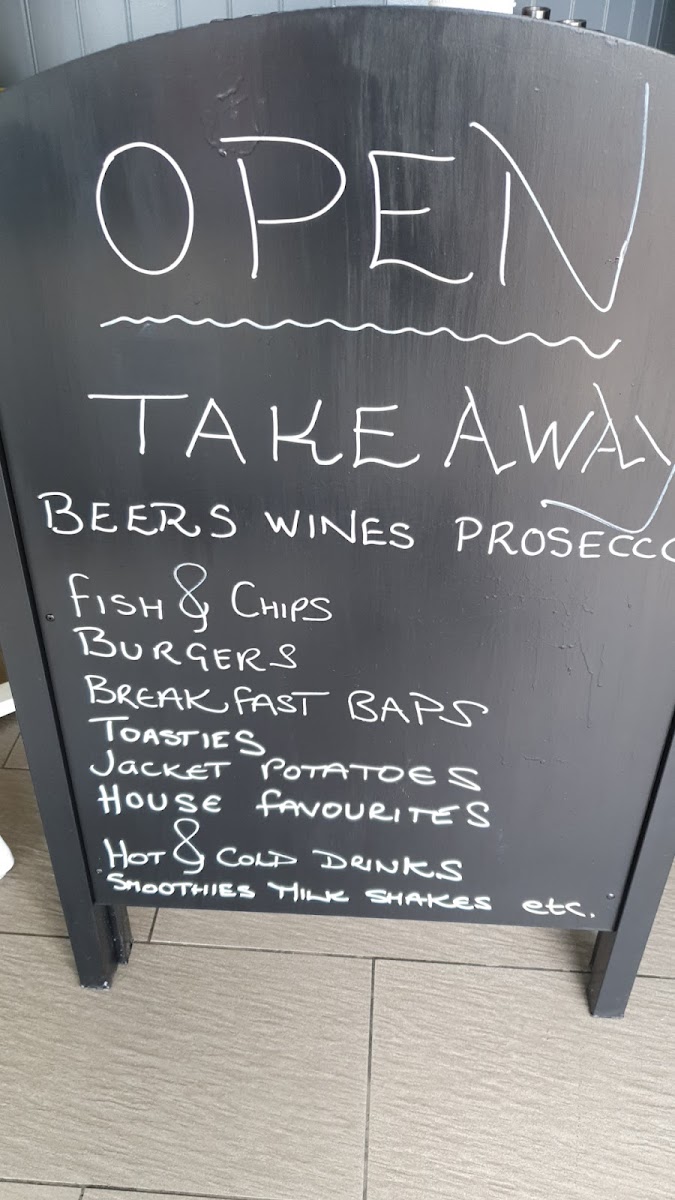 OPEN
TAKE AWAY
BEERS WINES PROSECCO
FISH & CHIPS
BURGERS
BREAKFAST BAPS
TOASTIES
JACKET POTATOES
HOUSE FAVOURITES
HOT & COLD DRINKS
SMOOTHIES MILK SHAKES etc.